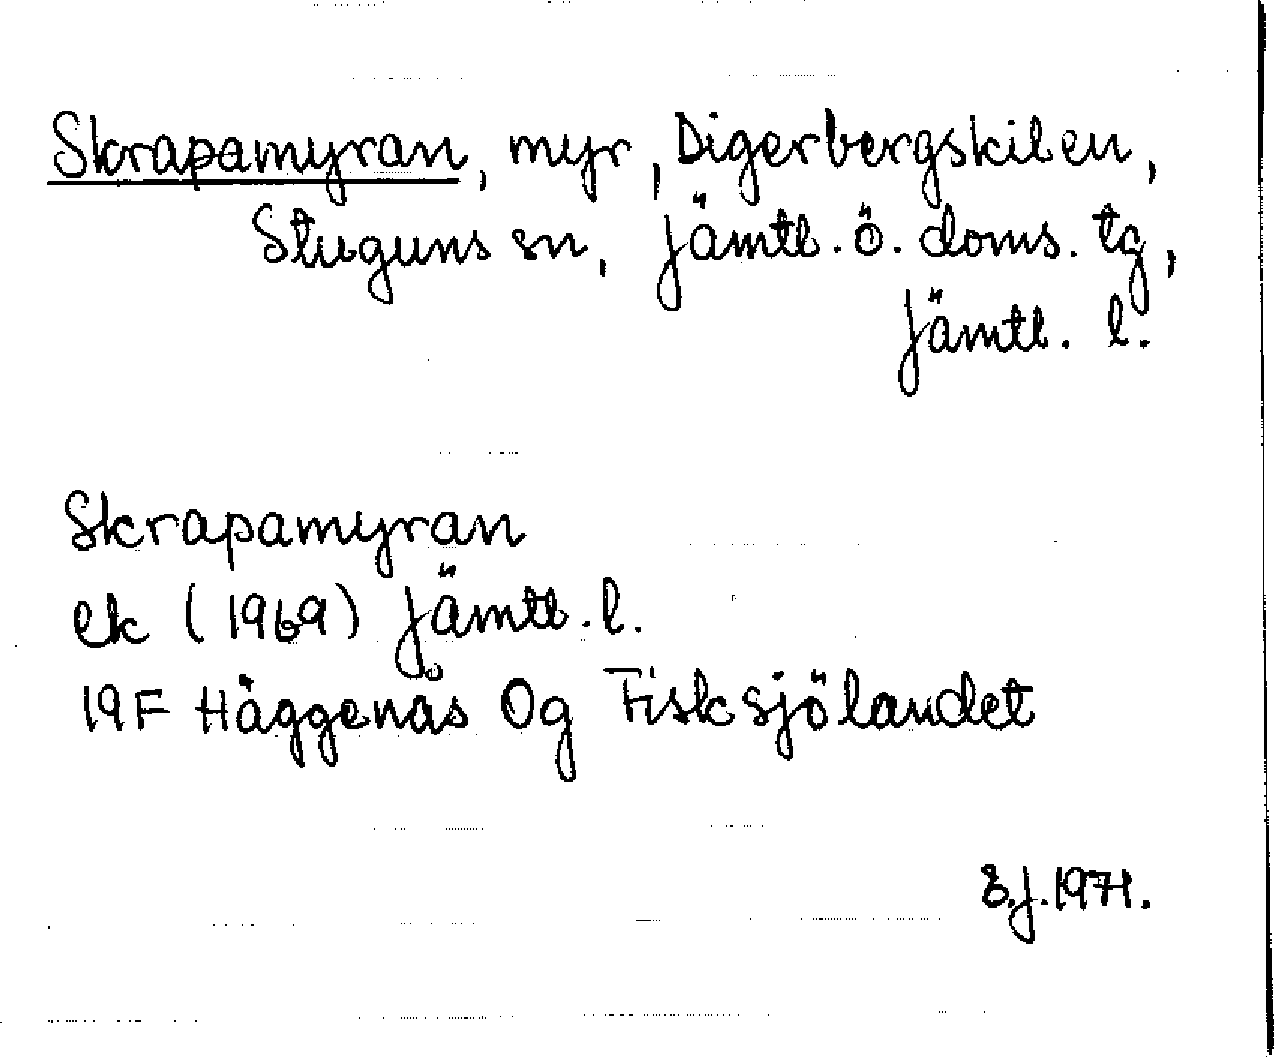 Skrapamyran, myr, Digerbergskilen,
Stuguns sn, Jämtl. ö. doms. tg,
Jämtl. l.
Skrapamyran
ek (1969) Jämtl. l.
19F Häggenås Og Fisksjölandet
E.J. 1971.